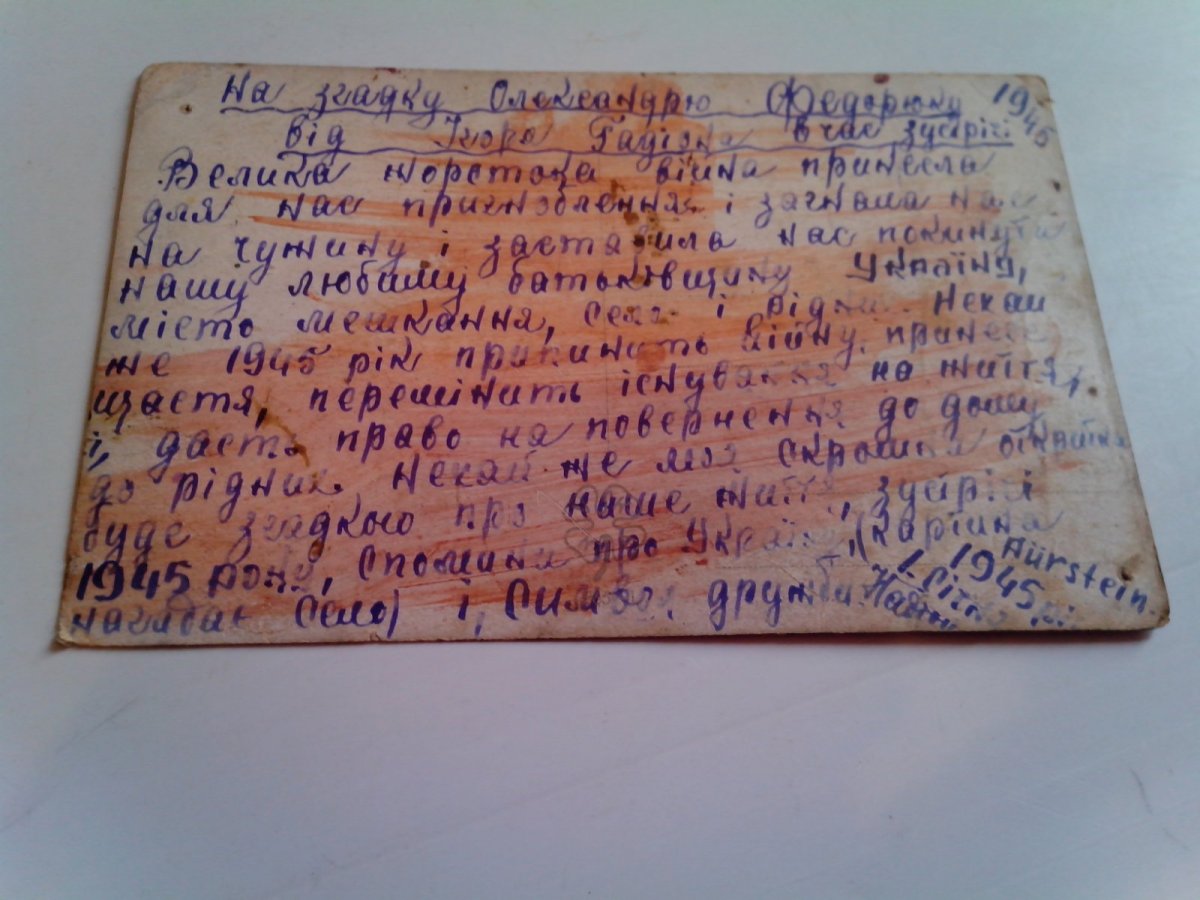 На згадку Олександрю Федорюку 1945
від Ігора Гадіяка в час зустрічі
Велика жорстока війна принесла
для нас пригноблення і загнала нас
на чужину і заставила нас покинути
нашу любиму батьківщину Україну,
місто мешкання, село і рідних. Нехай
же 1945 рік припинить війну, принесе
щастя, перемінить існування на життя,
і, дасть право на повернення до дому
до рідних. Нехай же моя скромна
буде згадкою про наше життя, зустрічі
1945 року, спомини про Україну, (картина
нагадає село) і, символ дружби.
Fürstein.
1. Січня 1945 р.